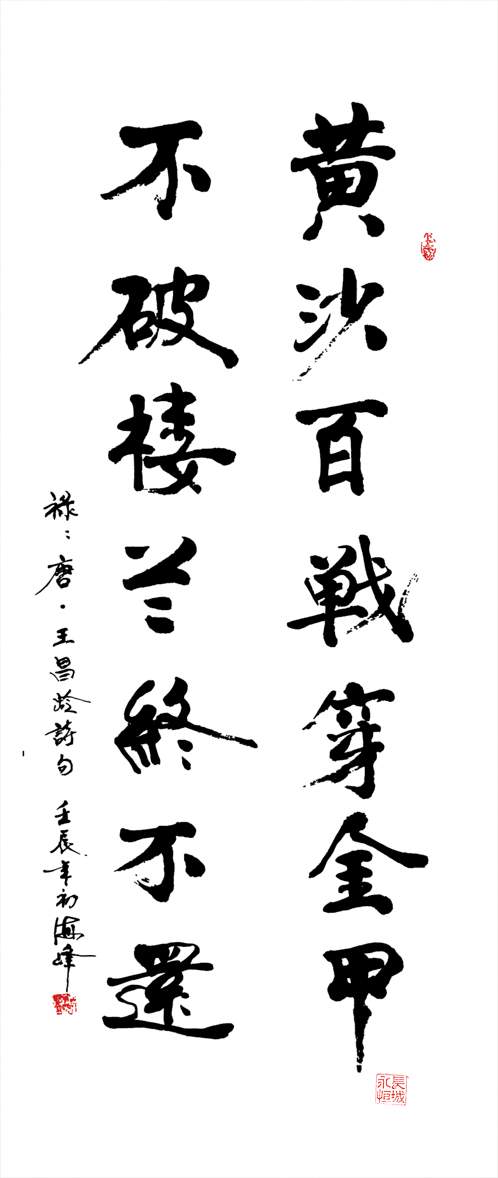 黄沙百戦穿金甲
不破楼兰終不還
禄：唐·王昌龄詩句 壬辰年初海峰
長城永恒